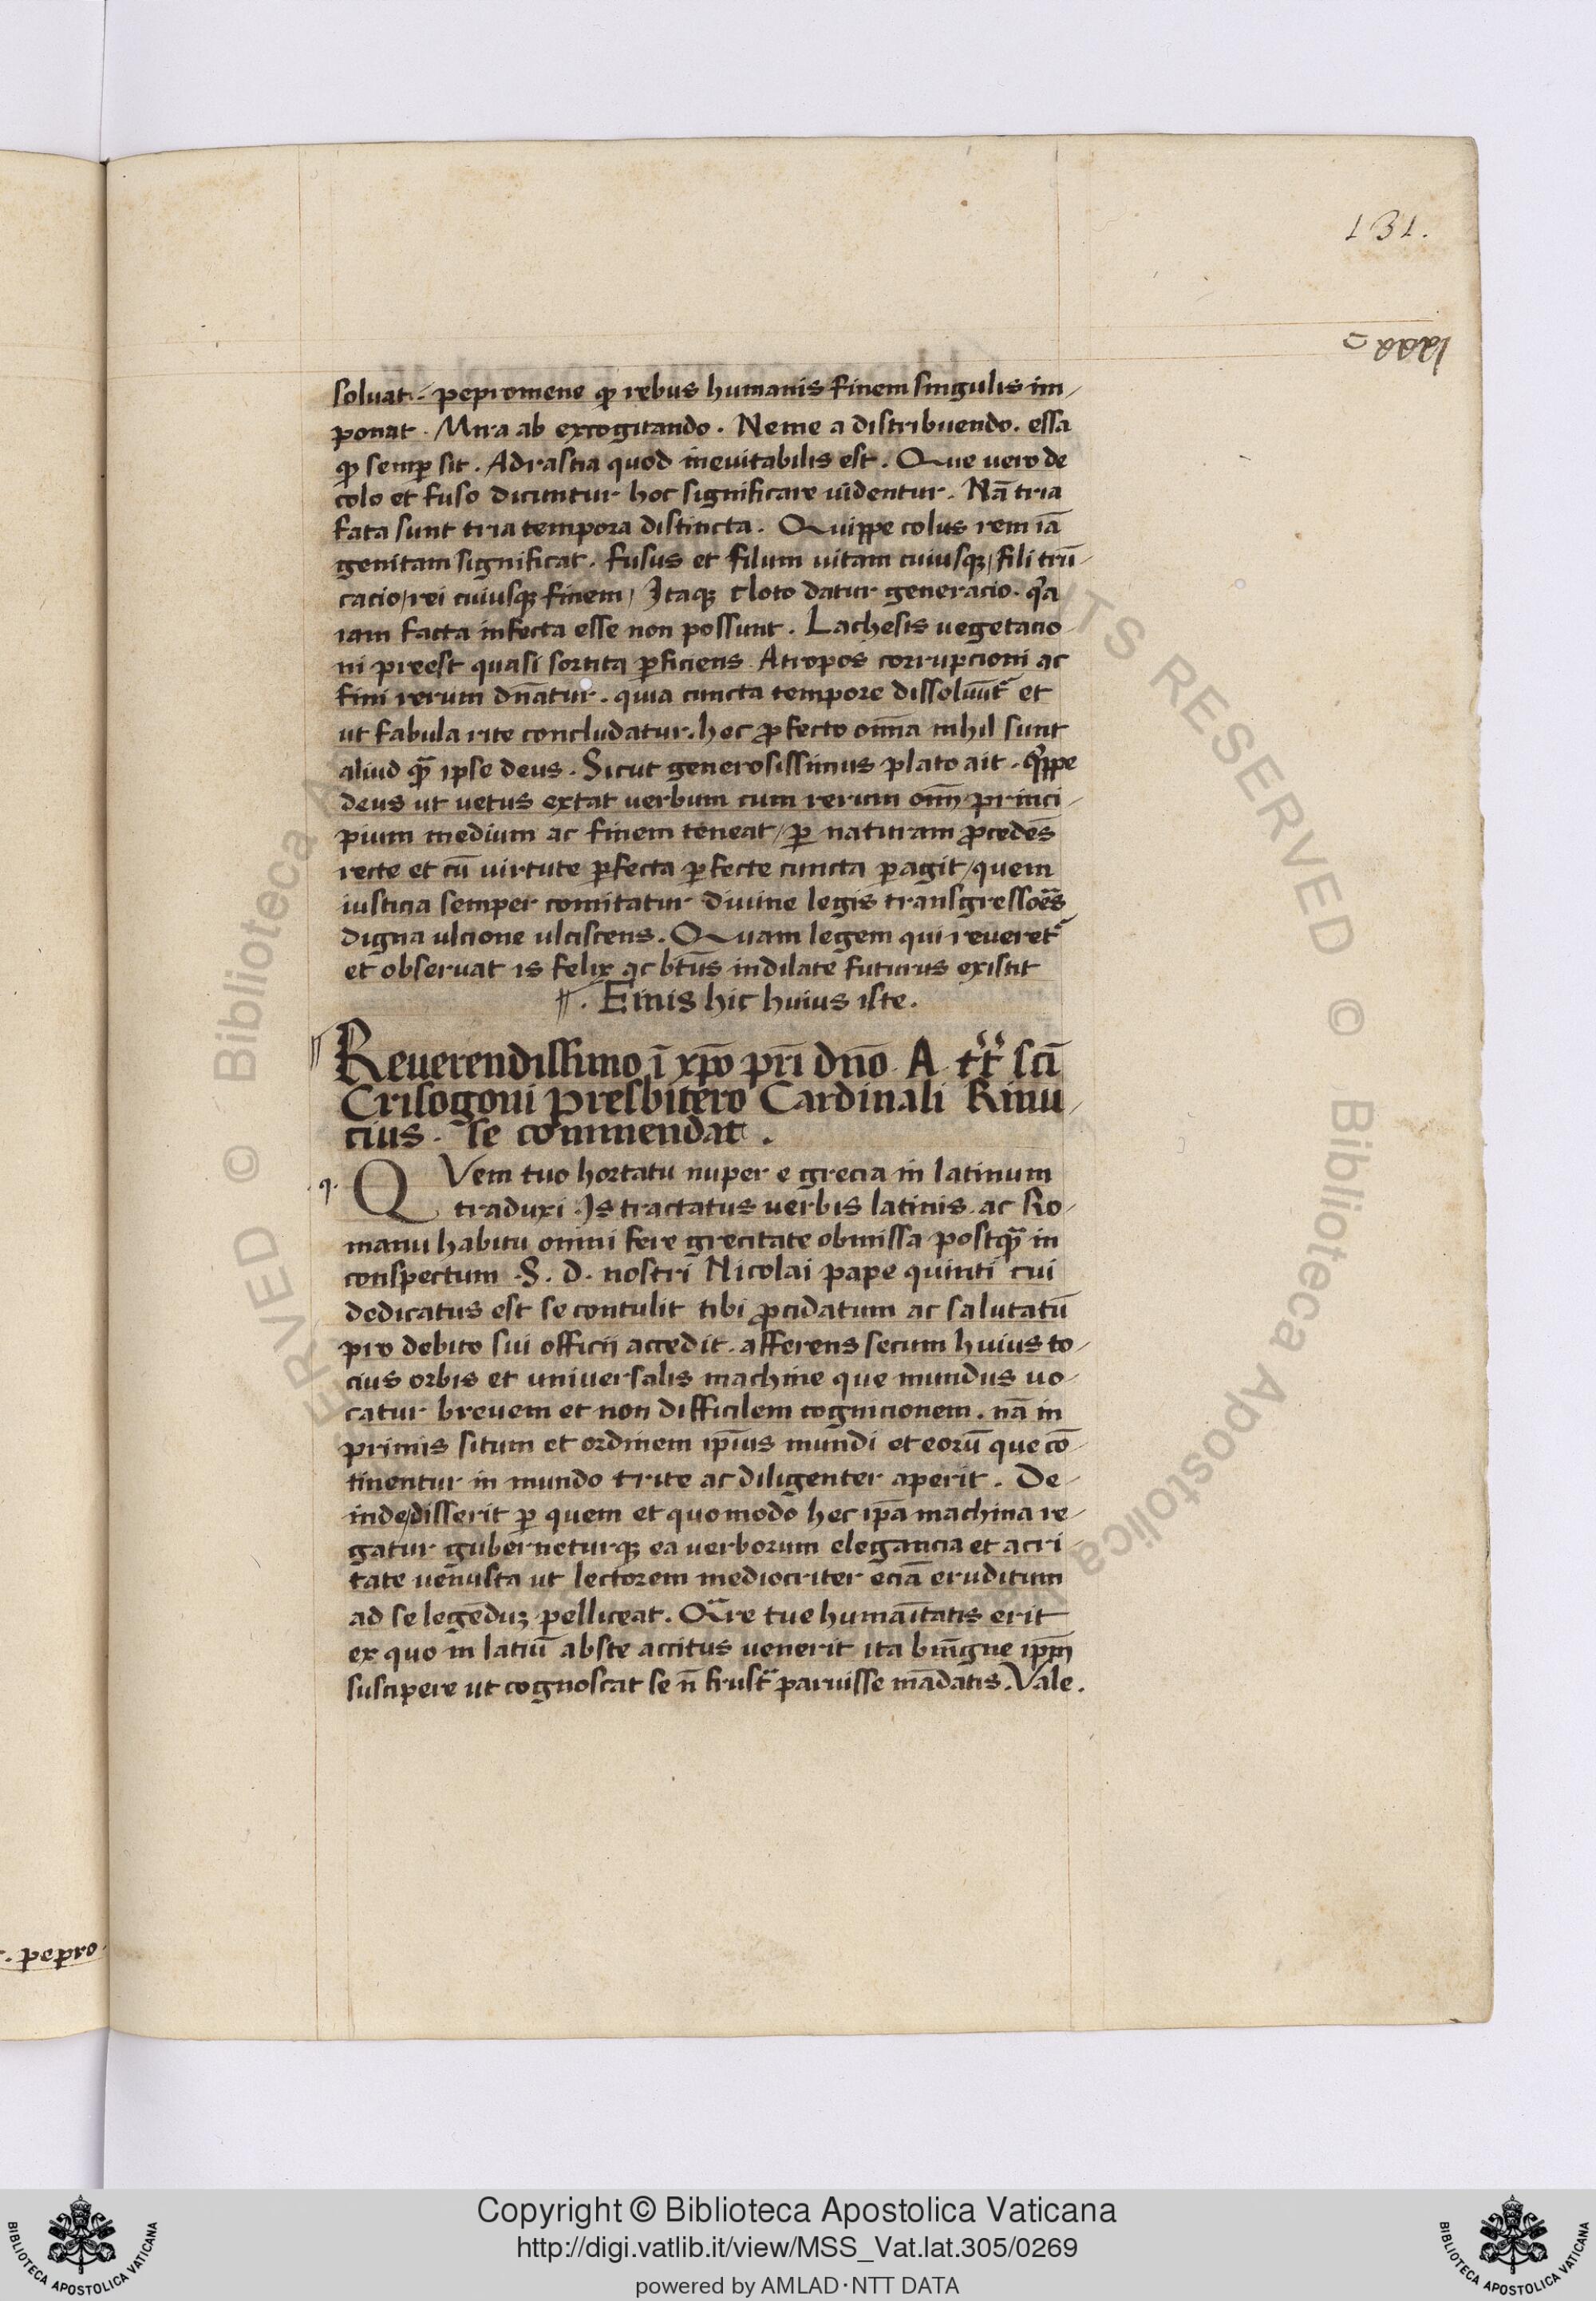 131.
soluat. pepromene qɔ rebus humanis finem singulis im-
ponat. Mira ab excogitando. Neme a distribuendo. essa
qɔ semꝑ sit. Adrastia quod ineuitabilis est. Que uero de
colo et fuso dicuntur hoc significare uidentur. Nā tria
fata sunt tria tempora distincta. Quippe colus rem iā
genitam significat. fusus et filum uitam cuiusqꝫ / fili trū-
cacio / rei cuiusqꝫ finem / Itaqꝫ cloto datur generacio. qꝛa
iam facta infecta esse non possunt. Lachesis uegetacio
ni preest quasi sortita ꝑficiens Atropos corrupcioni ac
fini rerum dn̄atur. quia cuncta tempore dissoluūt᷑ et
ut fabula rite concludatur. hec ꝓfecto om̄ia nihil sunt
aliud qꝫ̄ ipse deus. Sicut generosissimus plato ait. qͥppe
deus ut uetus extat uerbum cum rerum om̄ princi-
pium medium ac finem teneat / ꝑ naturam ꝓcedēs
recte et cū uirtute ꝑfecta ꝑfecte cuncta ꝑagit / quem
iusticia semper comitatur diuine legis transgressōes
digna ulcione ulciscens. Quam legem qui reueret᷑
et obseruat is felix ac bt̄us indilate futurus existit
¶. Finis hic huius iste.
¶ Reuerendissimo ī xp̄o pr̄i dn̄o A. tt̄ sc̄i
Crisogoni presbitero Cardinali Rinu-
cius. se commendat.
.q. QVem tuo hortatu nuper e grecia in latinum
traduxi. Is tractatus uerbis latinis. ac Ro-
manu habitu omni fere grecitate obmissa postqꝫ̄ in
conspectum .S. D. nostri Nicolai pape quinti cui
dedicatus est se contulit tibi ꝓcidatum ac salutatū
pro debito sui officij accedit. afferens secum huius to-
cius orbis et uniuersalis machine que mundus uo-
catur breuem et non difficilem cognicionem. nā in
primis situm et ordinem ip̄ius mundi et eorū que cō-
tinentur in mundo trite ac diligenter aperit. De-
inde / disserit ꝑ quem et quomodo hec ip̄a machina re-
gatur guberneturqꝫ ea uerborum elegancia et acri-
tate uenusta ut lectorem mediocriter eciā eruditum
ad se legēduꝫ pelliceat. Qͣre tue humaītatis erit
ex quo in latiū abste accitus uenerit ita bnīgne ip̄m
suscipere ut cognoscat se n̄ frustͣ paruisse mādatis. Vale.
. pepro
Copyright © Biblioteca Apostolica Vaticana
http://digi.vatlib.it/view/MSS_Vat.lat.305/0269
powered by AMLAD·NTT DATA
BIBLIOTECA APOSTOLICA VATICANA
BIBLIOTECA APOSTOLICA VATICANA